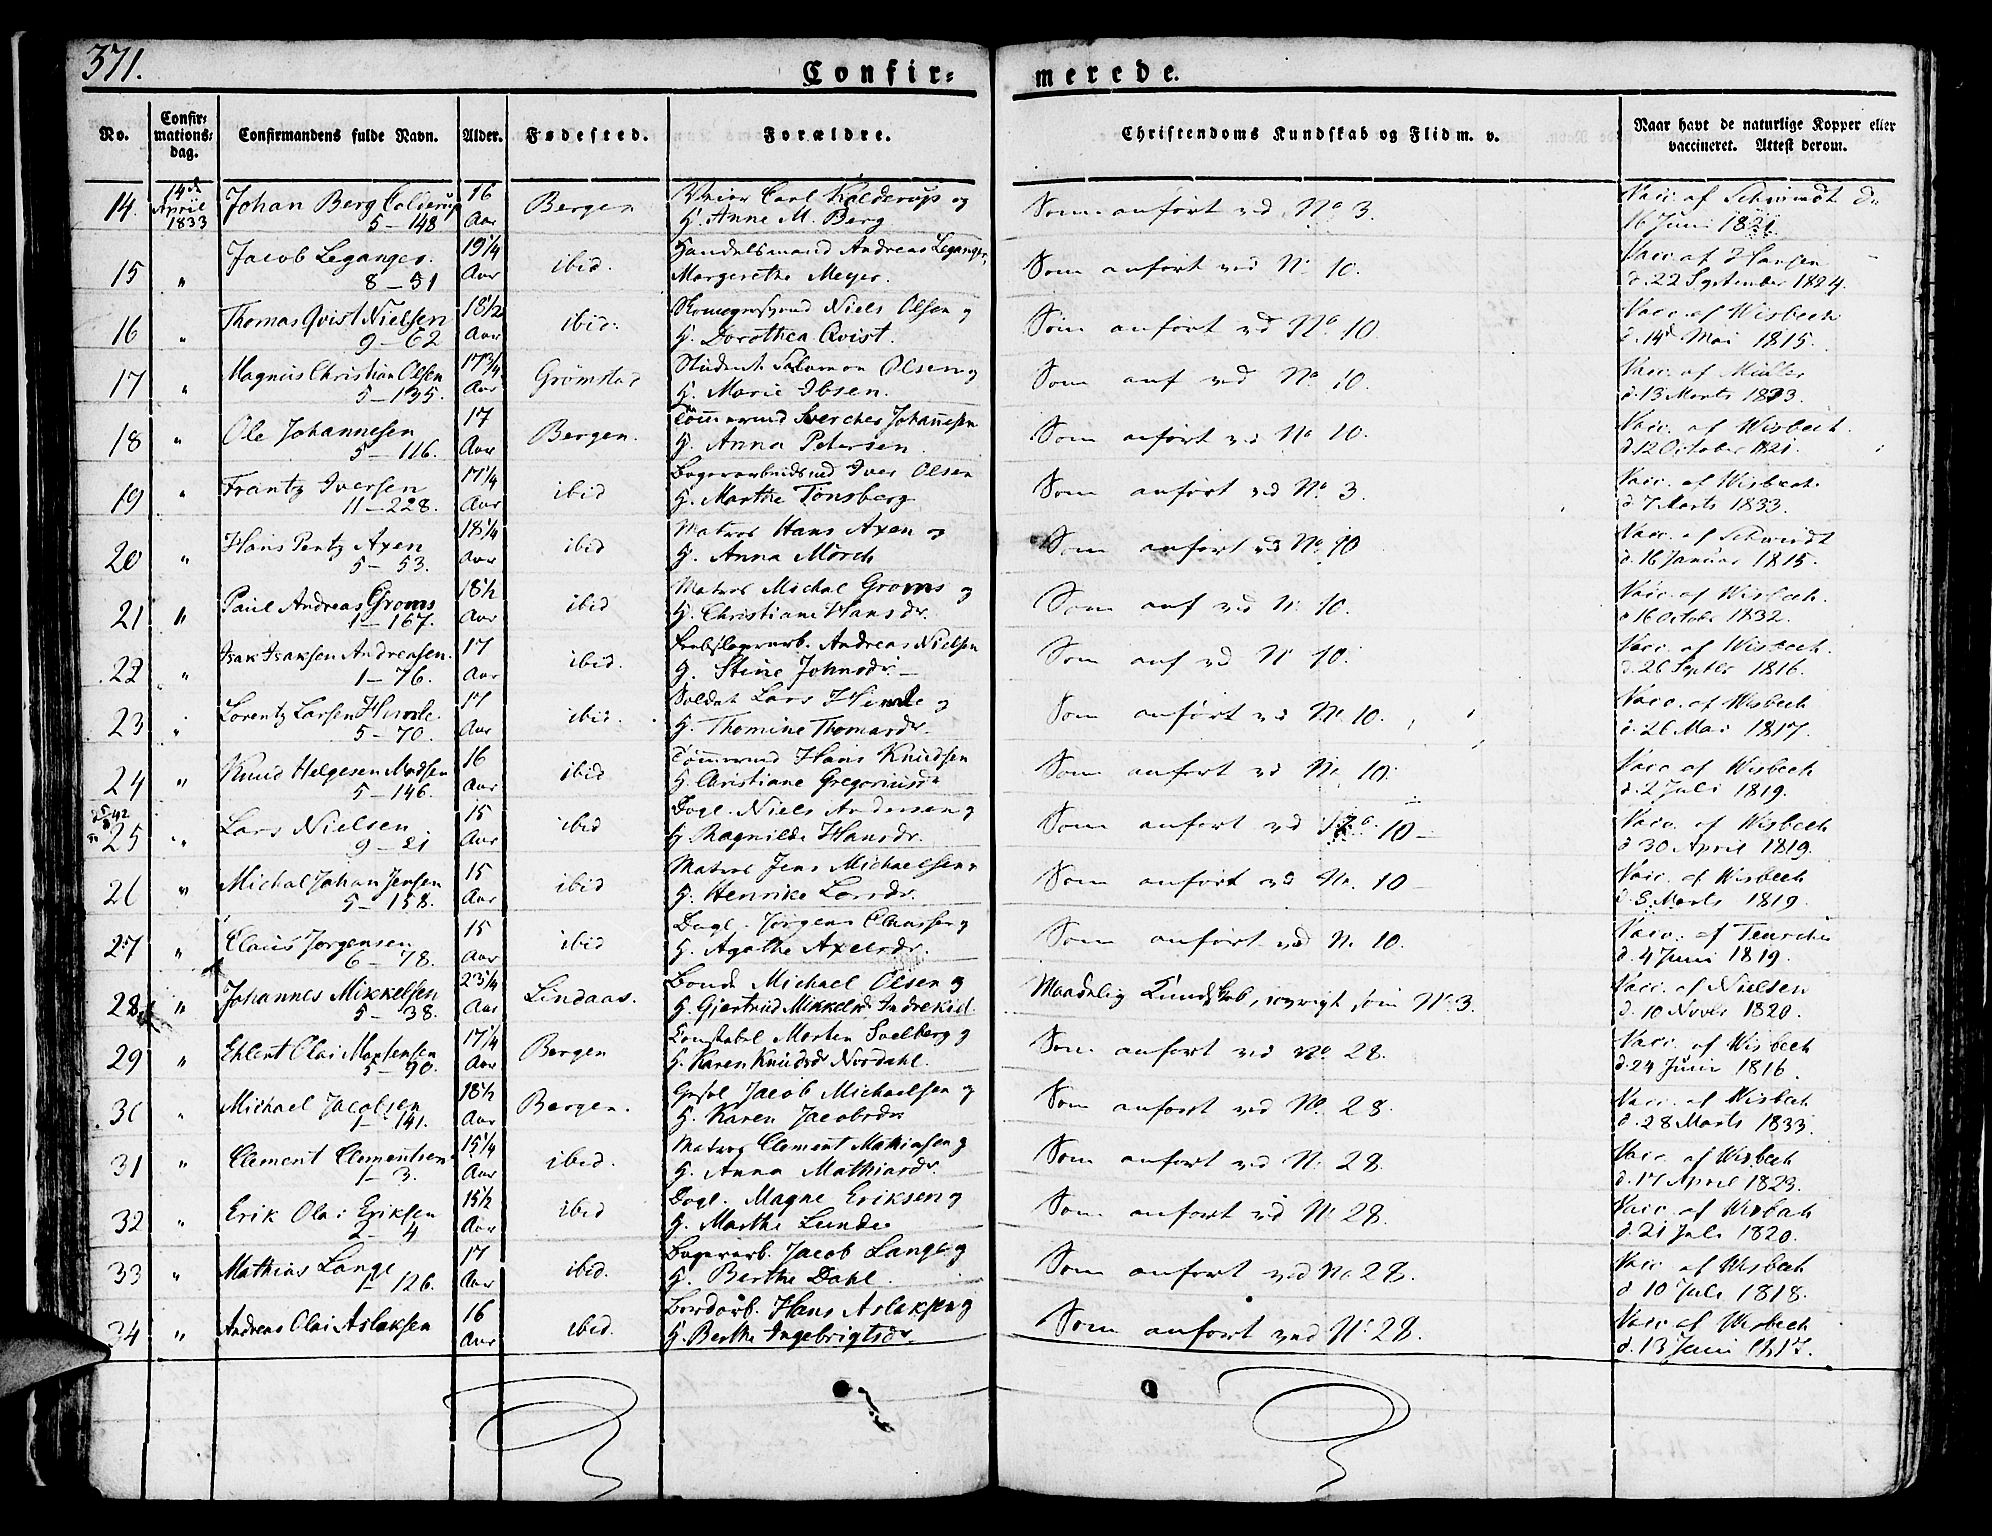 371.
Confir-
merede.
No.
Confir-
mations-
dag.
Confirmandens fulde Navn.
Alder.
Fødested.
Forældre.
Christendoms Kundskab og Flid m. v.
Naar havt de naturlige Kopper eller
vaccineret. Attest derom.
14. 14d April 1833 Johan Berg Calderup 16 Bergen Carl Kalderup og Som anført ved No 3. Vacc. af Schmidt d.
5–148 Aar H. Anne M. Berg 16 Juni 1821.
15 " Jacob Leganger. 19¼ ibid. Handelsmand Andreas Leganger, Som anført ved N. 10. Vacc. af Hansen
8–51 Aar Margrethe Meyer. d. 22 September 1824.
16 " Thomas Qvist Nielsen 18½ ibid. Niels Olsen og Som anført ved No 10. Vacc. af Wisbech
9–62 Aar H. Dorothea Qvist. d. 14d Mai 1815.
17 " Magnus Christian Olsen 17¾ Grømstad Student Salomon Olsen og Som anf ved No. 10. Vacc. af Müller
5–135. Aar H. Marie Ibsen. d. 13 Marts 1823.
18 " Ole Johannesen 17 Bergen. Tømmermd Johannesen Som anført ved No 10. Vacc. af Wisbech.
5–116. Aar H. Anna Petersen d 12 October 1821.
19 " Frantz Iversen 17¼ ibid Iver Olsen Som anført ved No. 3. Vacc. af Wisbech.
11–228. Aar H. Marthe Tønsberg d 7 Marts 1833.
20 " Hans Pentz Axen 18¼ ibid Matros Hans Axen og Som anført ved No. 10 Vacc. af Schmidt
5–53. Aar H. Anna Mørch d. 16 Januar 1815.
21 " Paul Andreas Groms 18½ ibid Matros Michal Groms og Som anf ved N. 10. Vacc. af Wisbech.
1–167. Aar H. Christiane Hansdr. d 16 October 1832.
22 " Isak Isaksen Andreasen. 17 ibid. Andreas Nielsen Som anf vd N 10. Vacc. af Wisbech.
1–76. Aar H. Stine Johnsdr. d. 26 Septbr 1816.
23 " Lorentz Larsen Himle. 17 ibid. Soldat Lars Himle og Som anført vd No. 10. Vacc. af Wisbech
5–70. Aar H. Thomine Thomasdr. d. 26 Mai 1817.
24 " Knud Helgesen Madsen 16 ibid Tømmermd Hans Knudsen Som anført vd No. 10. Vacc. af Wisbech
5–146. Aar H. Christiane Gregoriusdr d. 2 Juli 1819.
25 " Lars Nielsen 15 ibid Dagl. Niels Andersen og Som anført vd No 10– Vacc. af Wisbech
9–21 Aar H Ragnilde Hansdr. d 30 April 1819.
26 " Michal Johan Jensen 15 ibid Matros Jens Michaelsen Som anført vd No. 10– Vacc. af Wisbech
5–158. Aar H. Henrike Larsdr. d. 8 Marts 1819.
27 " Claus Jørgensen 15 ibid Dagl. Jørgen Claussen og Som anført ved N. 10. Vacc. af
6–78. Aar H. Agathe Axelsdr. d. 4 Juni 1819.
28 " Johannes Mikkelsen 23¼ Lindaas. Bonde Michael Olsen og Maadelig Kundskab, iøvrigt som No. 3. Vacc. af Nielsen
5–38. Aar H. Giertrud Mikkelsdr Indrekid d. 10 Novbr 1820.
29 " Ehlert Olai Mortensen 17¼ Bergen Constabel Morten Soelberg og Som anført ved No 28. Vacc. af Wisbech
5–90. Aar H. Karen Knudsdr Nordahl. d. 24 Juni 1816.
30 " Michael Jacobsen 18½ Bergen. Jacob Michaelsen og Som anført ved No. 28. Vacc. af Wisbech
1–141. Aar H. Karen Jacobsdr d. 28 Marts 1833.
31 " Clement Clementsen 15¼ ibid. Matros Clement Mathiasen og Som anført ved N. 28. Vacc. af Wisbech
1–3. Aar H. Anna Mathiasdr. d. 17 April 1823.
32 " Erik Olai Eriksen 15½ ibid Dagl. Magne Eriksen og Som anført vd No 28. Vacc. af Wisbech
2–4 Aar H. Marthe Lunde d. 21 Juli 1820.
33 " Mathias Lange 17 ibid. Jacob Lange og Som anført ved No 28. Vacc. af Wisbech
1–126. Aar H. Berthe Dahl. d 10 Juli 1818.
34 " Andreas Olai Aslaksen 16 ibid. Hans Aslaksen og Som anført ved N. 28. Vacc. af Wisbech
Aar H. Berthe Ingebrigtsdr. d. 13 Juni 1817.